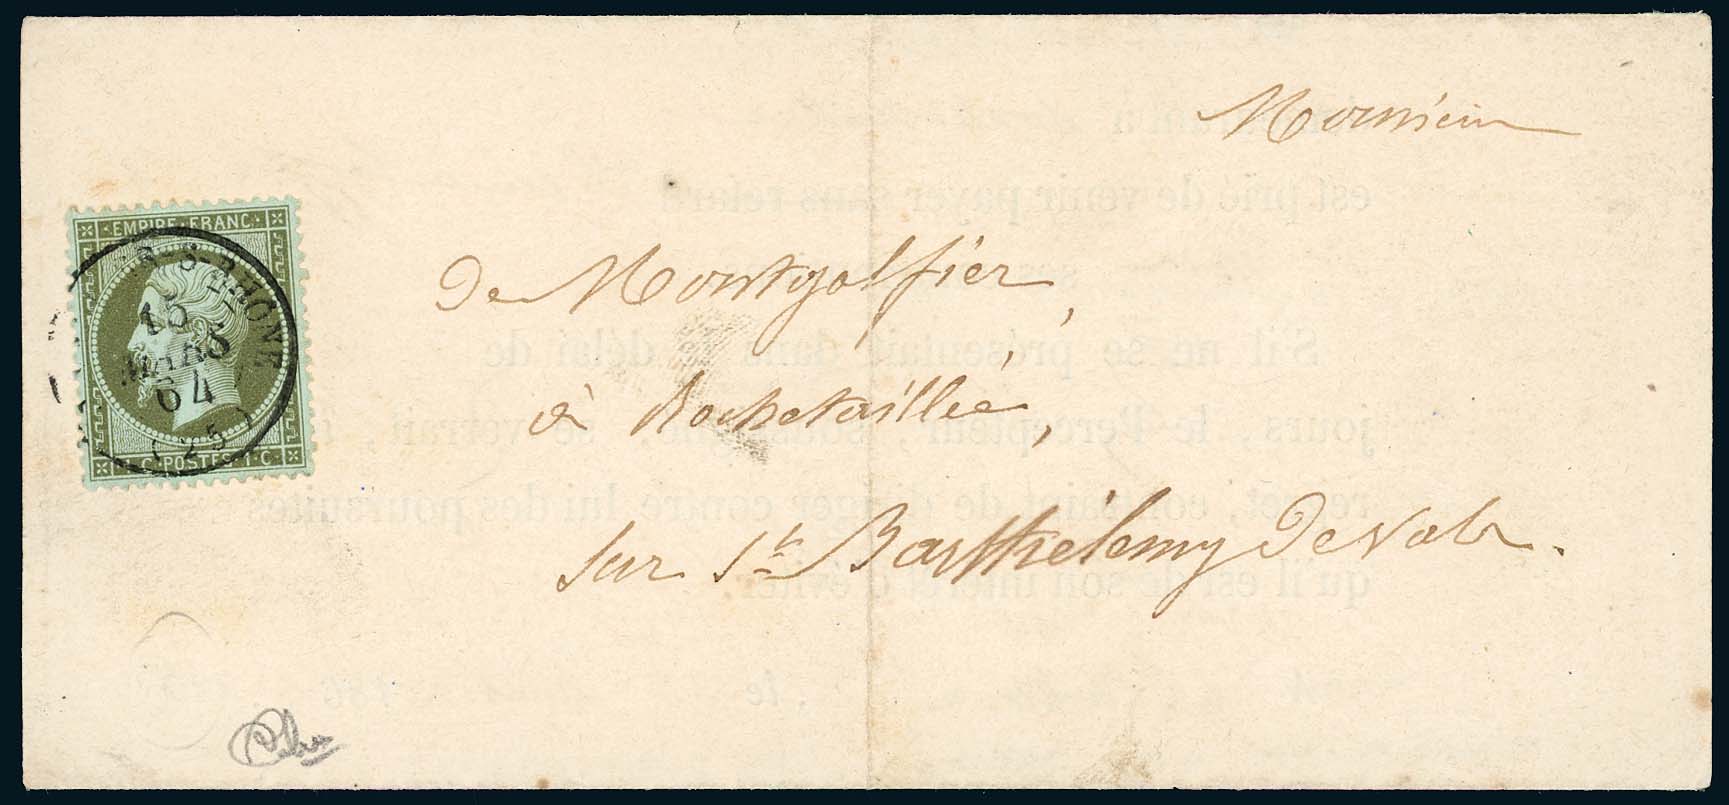 Monsieur
EMPIRE · FRANC ·
R-S-RHONE
15
MARS
64
(25)
1 · C · POSTES · 1 · C ·
de Montgolfier,
à Rochetaillée,
sur St Barthélemy De Vals.
est prié de venir payer sans retard
S'il ne se présentait dans le délai de
jours, le Percepteur soussigné, se verrait,
regret, contraint de diriger contre lui des poursuites
qu'il est de son intérêt d'éviter.
le 186